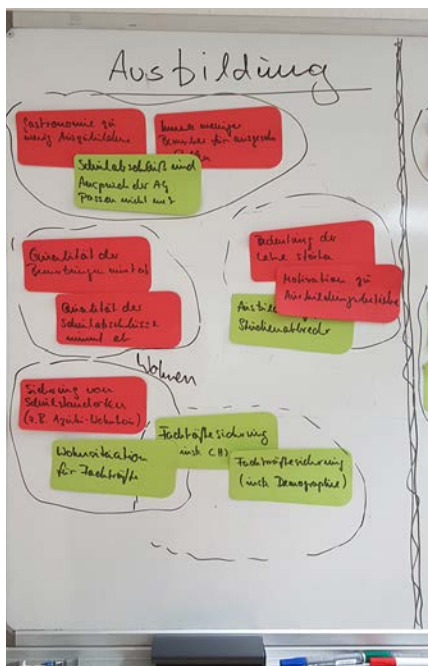 Ausbildung
Gastronomie zu
wenig Ausgebildete
Immer weniger
Bewerber für ausgeschr.
Schulabschluß und
Anspruch der AG
Passen nicht mit
Qualität der
Bewerbungen nimmt ab
Qualität der
Schulabschlüsse
nimmt ab
Bedeutung der
Lehre stärken
Motivation zu
Ausbildungsbetriebe
Studienabbrecher
Wohnen
Sicherung von
Schulstandorten
(z.B. Azubi-Wohnheim)
Wohnsituation
für Fachkräfte
Fachkräftesicherung
(insb. CH)
Fachkräftesicherung
(insb. Demographie)